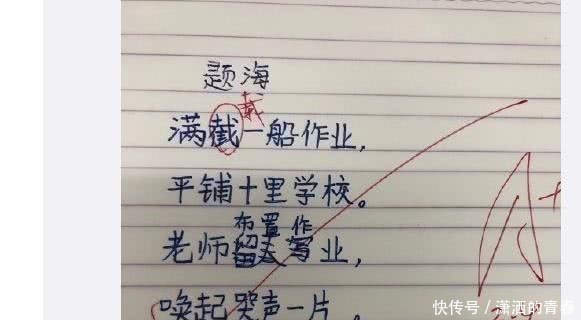 题海
载
满截一船作业，
平铺十里学校。
布置作
老师业，
唤起哭声一片。
A+
快传号／潇洒的青春